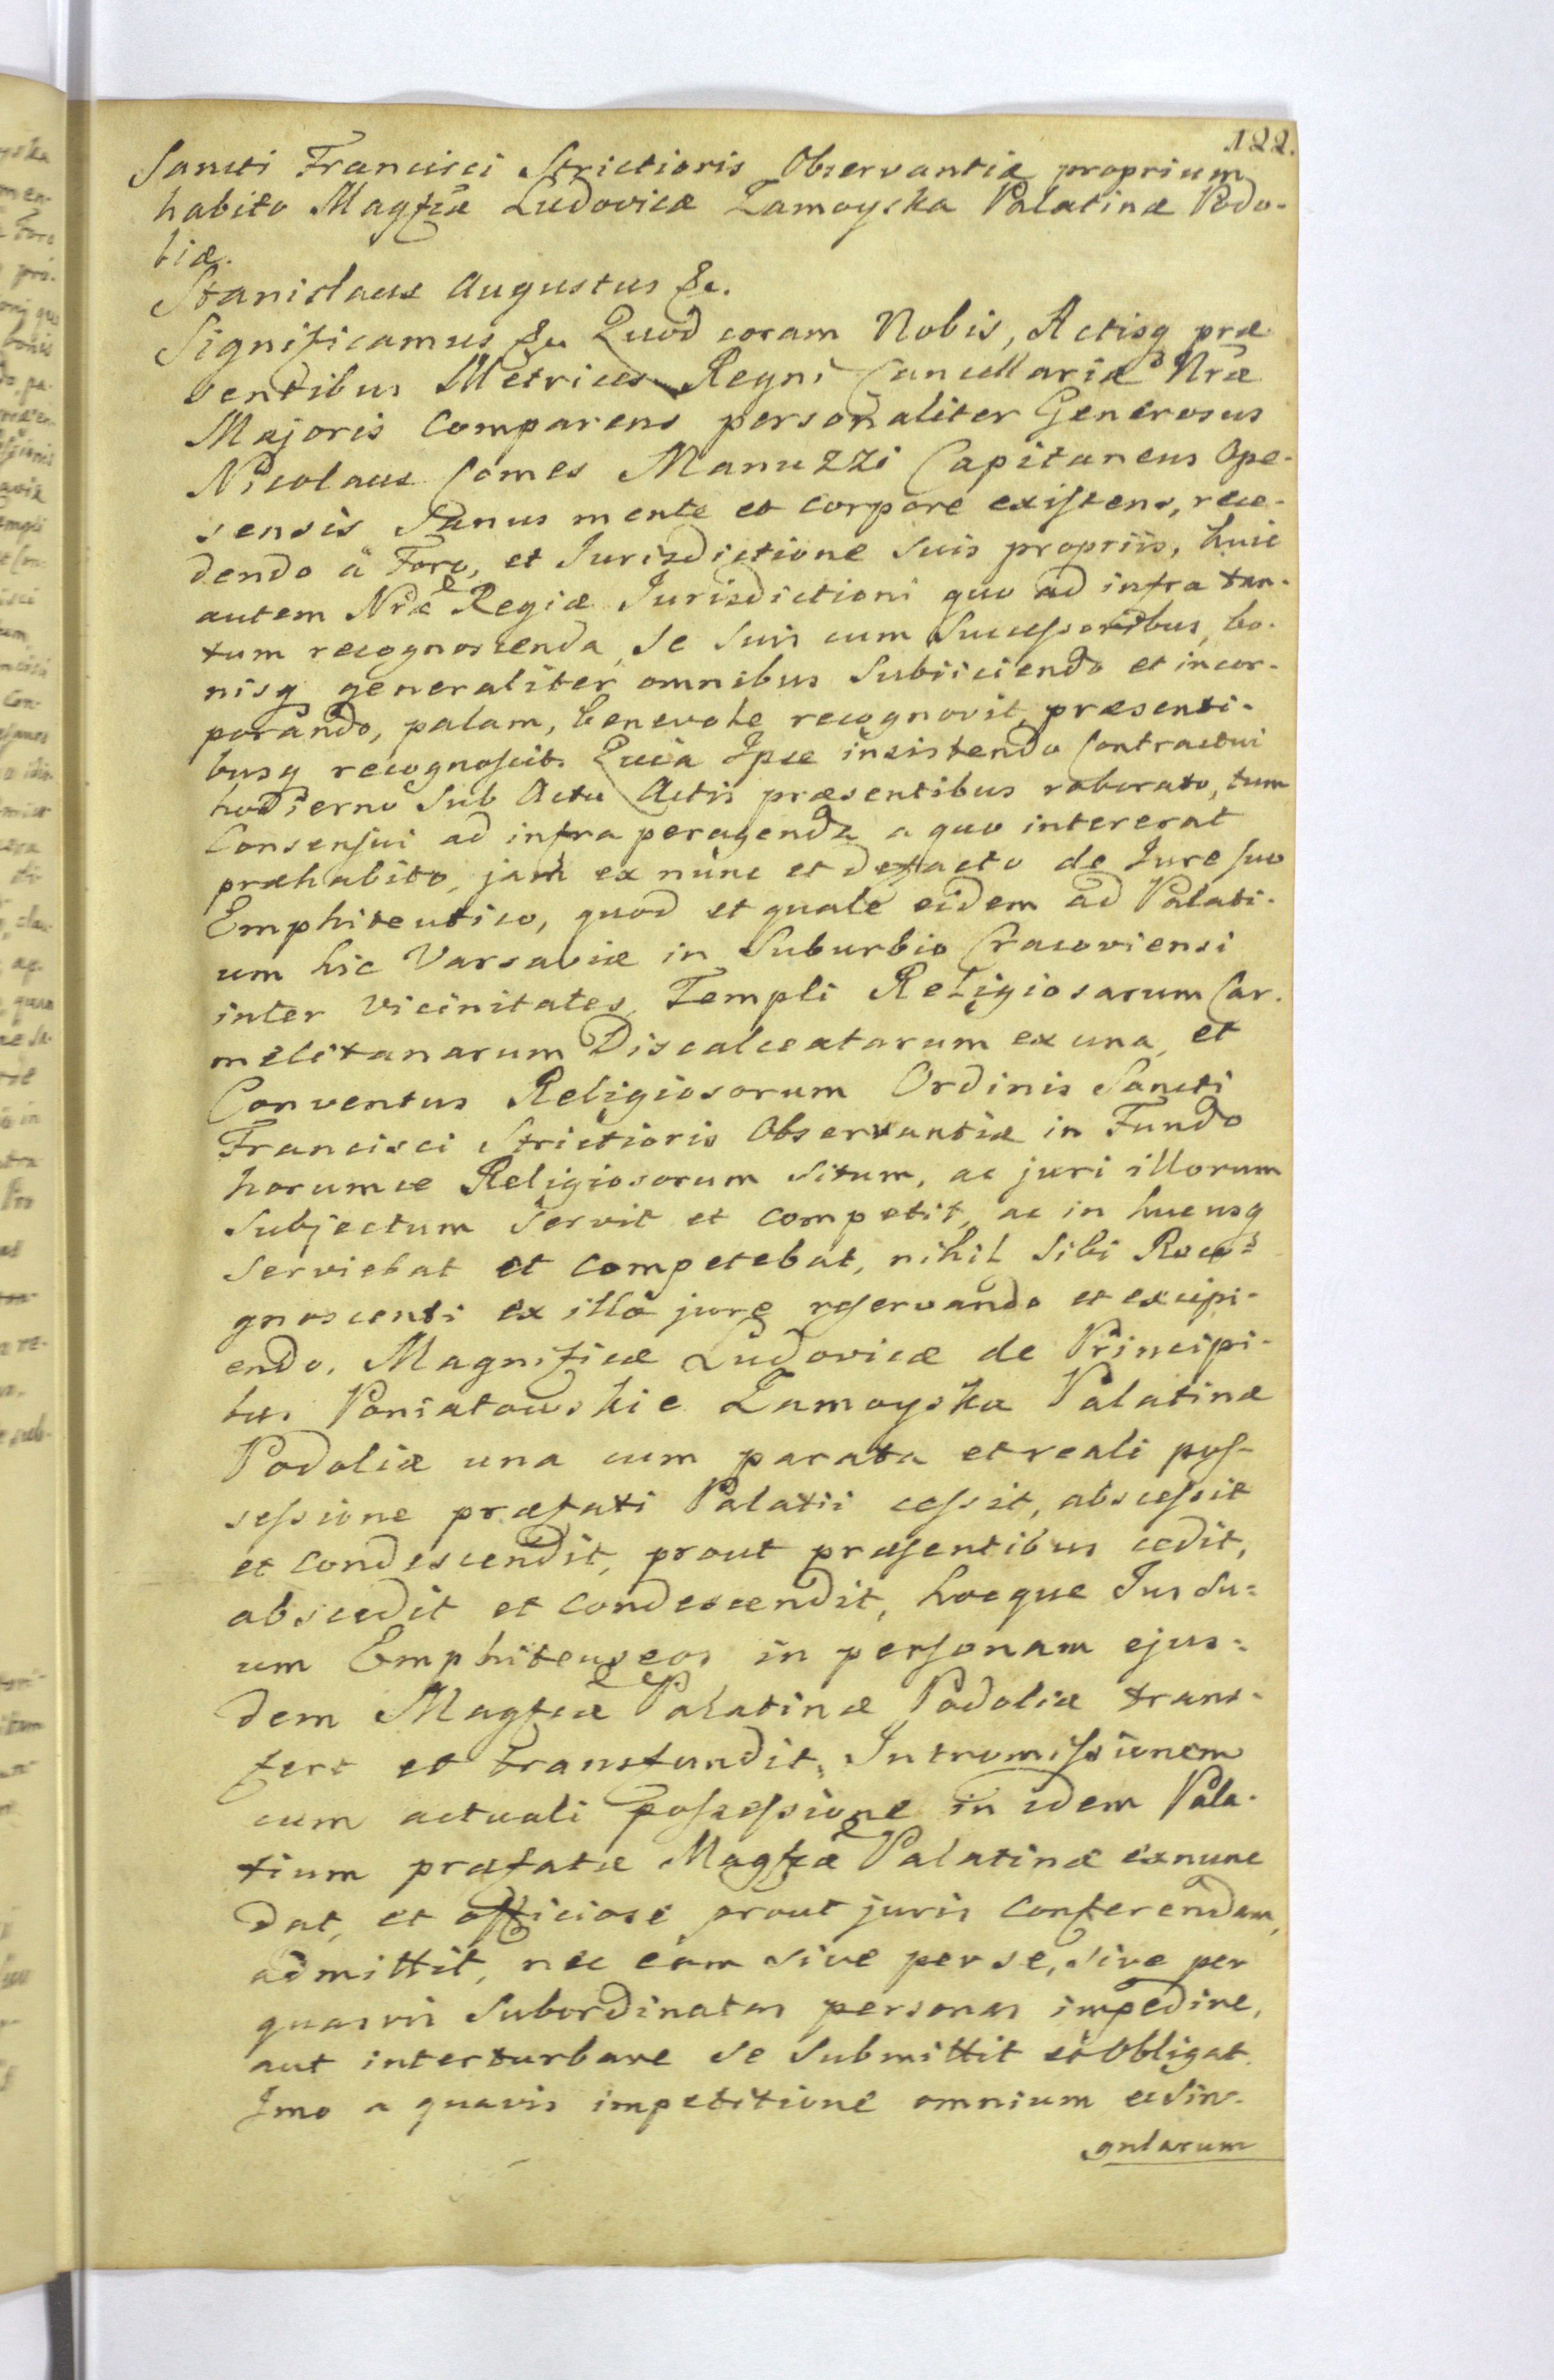 122.
Sancti Francisci Strictioris Observantiæ proprium
habito Magfcæ Ludovicæ Zamoyska Palatinæ Podo-
liæ.
Stanislaus Augustus &c.
Significamus &c Quod coram Nobis, Actisq præ
sentibus Metrices Regni Cancellariæ Nræ
Majoris Comparens personaliter Generosus
Nicolaus Comes Manuzzi Capitaneus Ope-
sensis Sanus mente et corpore existens, rece-
dendo à Foro, et Jurisdictione suis propriis, huic
autem Nræ Regiæ Jurisdictioni quo ad infra tan-
tum recognoscenda, se suis cum Successoribus, bo-
nisq generaliter omnibus Subiiciendo et incor-
porando, palam, benevole recognovit, præsenti-
busq recognoscit. Quia Ipse insistendo Contractui
hodierno Sub Actu Actis præsentibus roborato, tum
Consensui ad infra peragenda a quo intererat
præhabito, jam ex nunc et defacto de Jure suo
Emphiteutico, quod et quale eidem ad Palati-
um hic Varsaviæ in Suburbio Cracoviensi
inter vicinitates Templi Religiosarum Car-
melitanarum Discalceatarum ex una, et
Conventus Religiosorum Ordinis Sancti
Francisci Strictioris Observantiæ in Fundo
horumce Religiosorum situm, ac juri illorum
Subjectum servit et competit, ac in hucusq
serviebat et competebat, nihil sibi Reco=
gnoscenti ex illo jure reservando et excipi-
endo, Magnificæ Ludovicæ de Principi-
bus Poniatowskie Zamoyska Palatinæ
Podoliæ una cum parata et reali pos-
sessione præfati Palatii cessit, abscessit
et condescendit, prout præsentibus cedit,
abscedit et condescendit, hocque Jus su=
um Emphiteuseos in personam ejus=
dem Magfcæ Palatinæ Podoliæ trans-
fert et transfundit, Intromissionem
cum actuali possessione in idem Pala-
tium præfatæ Magfcæ Palatinæ exnunc
dat, et officiose prout juris conferendam,
admittit, nec eam sive per se, sive per
quasvis Subordinatas personas impedire,
aut interturbare se submittit et Obligat.
Imo a quavis impetitione omnium et sin-
gularum